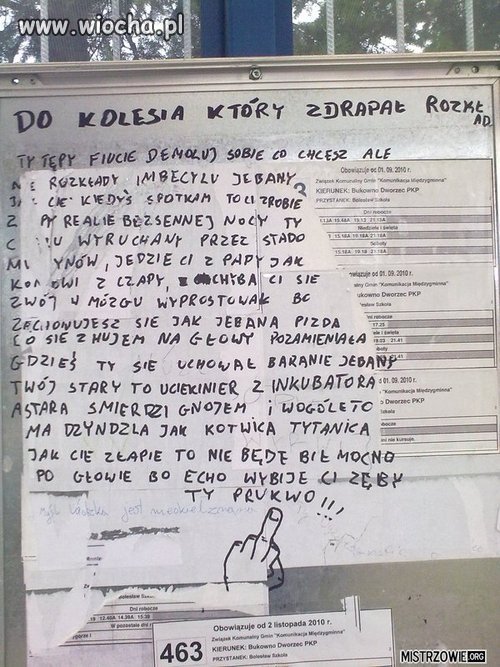 www.wiocha.pl
DO KOLESIA KTÓRY ZDRAPAŁ ROZKŁ
AD
TY TĘPY FIUCIE DEMOLUJ SOBIE CO CHCESZ ALE
ROZKŁADY IMBECYLU JEBANY
CIE KIEDYŚ SPOTKAM TO CI ZROBIE
Z REALIE BEZSENNEJ NOCY TY
WYRUCHANY PRZEZ STADO
JEDZIE CI Z PAPY JAK
KONIOWI Z CZAPY, CHYBA CI SIE
ZWÓJ W MÓZGU WYPROSTOWAŁ BO
ZACHOWUJESZ SIE JAK JEBANA PIZDA
CO SIE Z HUJEM NA GŁOWY POZAMIENIAŁA
GDZIEŚ TY SIE UCHOWAŁ BARANIE JEBANY
TWÓJ STARY TO UCIEKINIER Z INKUBATORA
A STARA SMIERDZI GNOJEM i WOGÓLE TO
MA DZYNDZLA JAK KOTWICA TYTANICA
JAK CIE ZŁAPIE TO NIE BĘDĘ BIŁ MOCNO
PO GŁOWIE BO ECHO WYBIJE CI ZĘBY
TY PRUKWO!!!
jest
Obowiązuje od 01. 09. 2010 r.
Związek Komunalny Gmin "Komunikacja Międzygminna"
KIERUNEK: Bukowno Dworzec PKP
PRZYSTANEK: Bolesław Szkoła
Dni robocze
Niedziele i święta
Soboty
15.18 19.18 21.18
od 01. 09. 2010 r.
Gmin "Komunikacja Międzygminna"
Bukowno Dworzec PKP
Szkoła
Dni robocze
17.25
i święta
od 01. 09. 2010 r.
"Komunikacja Międzygminna"
Dworzec PKP
Szkoła
nie kursuje.
Bolesław
Dni robocze
12.40 14.39 15.39
W pozostałe dni
Obowiązuje od 2 listopada 2010 r.
463
Związek Komunalny Gmin "Komunikacja Międzygminna"
KIERUNEK: Bukowno Dworzec PKP
PRZYSTANEK: Bolesław Szkoła
MISTRZOWIE.ORG